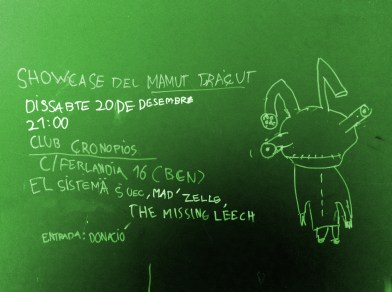 SHOWCASE DEL MAMUT TRAÇUT
DISSABTE 20 DE DESEMBRE
21:00
CLUB CRONOPIOS
C/FERLANDIA 16 (BCN)
EL SISTEMA SUEC, MAD'ZELLE,
THE MISSING LEECH
ENTRADA: DONACIÓ